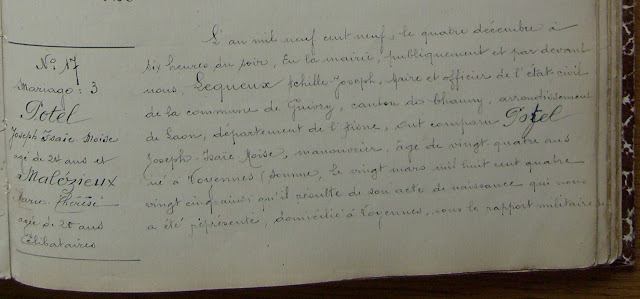 No: 17
Mariage: 3
Potel
Joseph Isaïe Moïse
agé de 24 ans et
à Malézieux
Marie Thérèse
agée de 20 ans
Célibataires
L'an mil neuf cent neuf, le quatre décembre à
six heures du soir, En la mairie, publiquement et par devant
nous, Lequeux Achille Joseph, Maire et officier de l'état civil
de la commune de Guivry, canton de Chauny, arrondissement
de Laon, département de l'Aisne, Ont comparu Potel
Joseph Isaïe Moïse, manouvrier, âgé de vingt quatre ans
né à Voyennes (Somme, le vingt mars mil huit cent quatre
vingt cinq ainsi qu'il résulte de son acte de naissance qui nous
a été représenté, domicilié à Voyennes, sous le rapport militaire